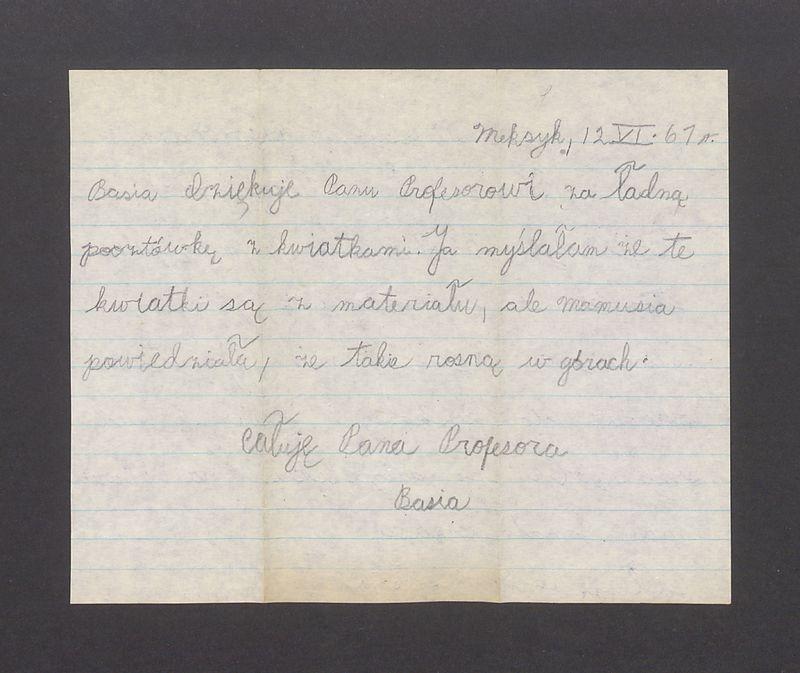 Meksyk, 12.VI.67 r.
Basia dziękuję Panu Profesorowi za ładną
pocztówkę z kwiatkami. Ja myślałam że te
kwiatki są z materiału, ale mamusia
powiedziała, że takie rosną w górach.
Całuję Pana Profesora
Basia